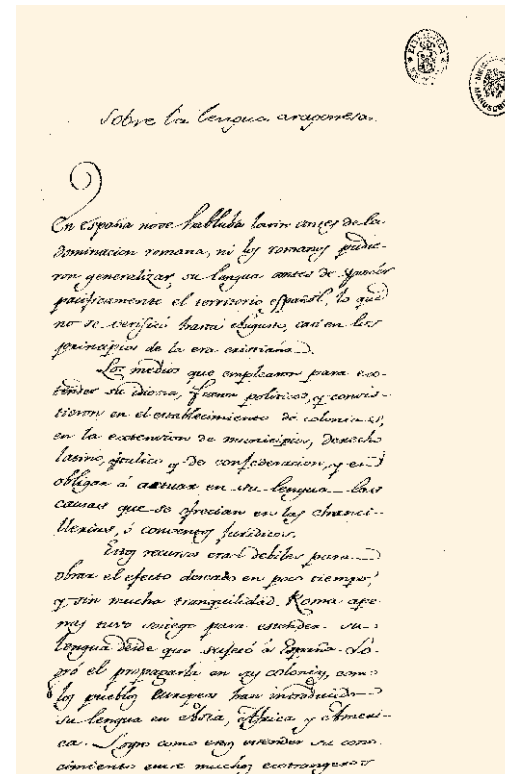 Sobre la lengua aragonesa.
En españa no se hablaba latin antes de la
dominacion romana, ni los romanos pudie-
ron generalizar su lengua antes de poseer
pacificamente el territorio español, lo que
no se verificó hasta Augusto, casi en los
principios de la era cristiana.
Los medios que emplearon para ex-
tender su idioma, fueron politicos, y consis-
tieron en el establecimiento de colonias,
en la extension de municipios, derecho
latino, italico y de confederacion, y en
obligar á actuar en su lengua las
causas que se ofrecian en las chanci-
llerias, ó conventos juridicos.
Estos recursos eran debiles para
obrar el efecto deseado en poco tiempo,
y sin mucha tranquilidad. Roma ape-
nas tuvo sosiego para estender su
lengua desde que sujetó á España. Lo-
gró el propagarla en sus colonias, como
los pueblos europeos han introducido
su lengua en Asia, Africa y Ameri-
ca. Logró como estos estender su cono-
cimiento entre muchos extrangeros